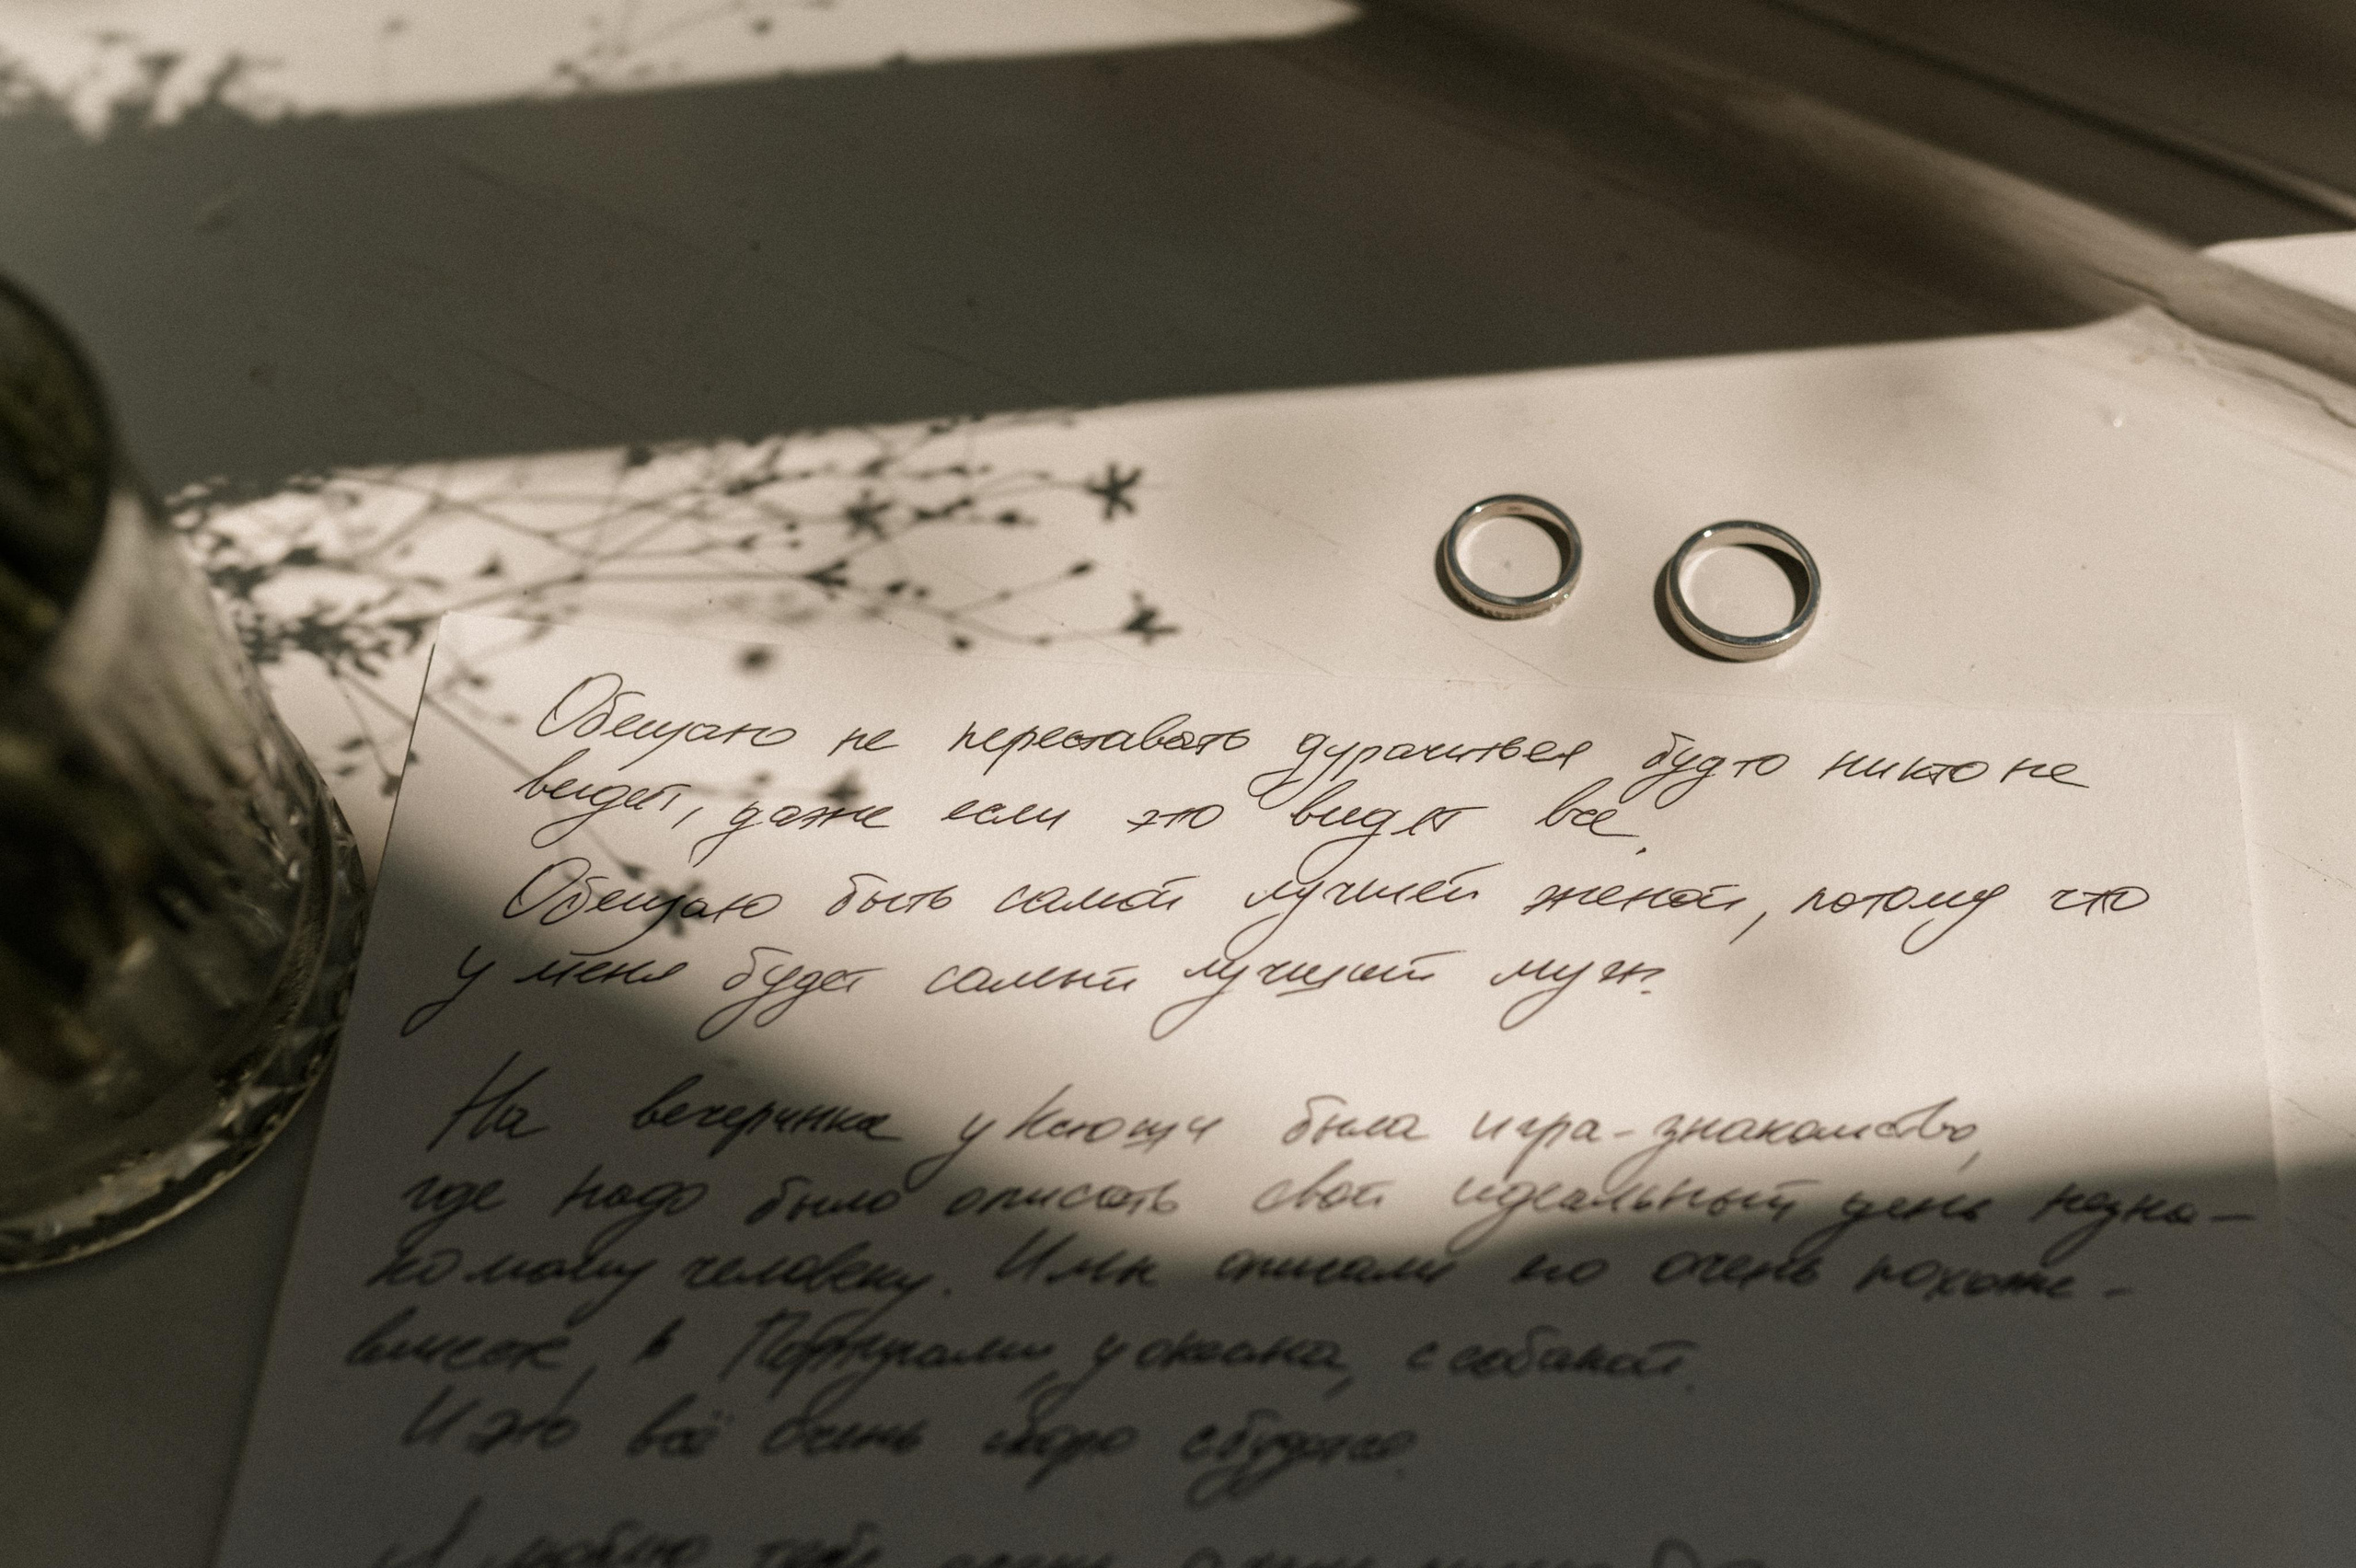 Обещаю не переставать дурачиться будто никто не
видит, даже если это видят все.
Обещаю быть самой лучшей женой, потому что
у меня будет самый лучший муж.
На вечеринке у Ксюши была игра-знакомство,
где надо было описать свой идеальный день незна-
комому человеку. И мы описали его очень похоже -
вместе, в Португалии, у океана, с собакой.
И это всё очень скоро сбудется.
Я люблю тебя